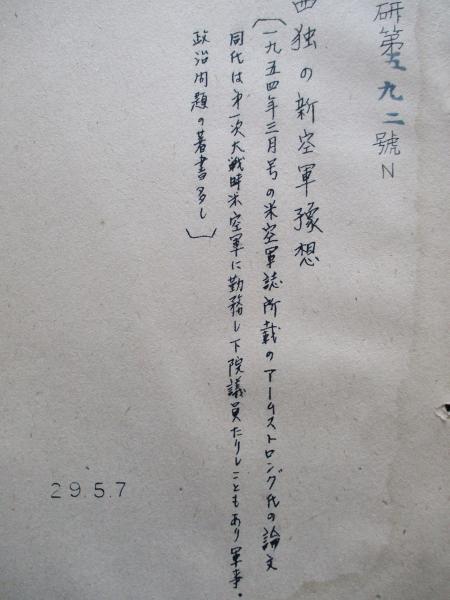 研第五九二號N
西独の新空軍豫想
（一九五四年三月号の米空軍誌所載のアームストロング氏の論文
同氏は第一次大戦時米空軍に勤務し下院議員たりしこともあり軍事・
政治問題の著書多し）
29.5.7